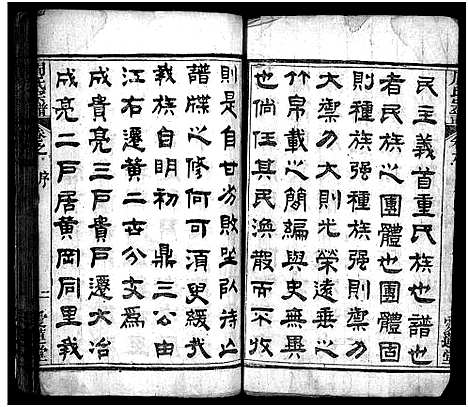 民主義首重民族也譜也
者民族之團體也團體固
則種族強種族強則可以
大禦力大則光榮遠垂之
竹帛載之簡編與史無異
也倘任其民渙散而不收
則是自甘劣敗坐以待亡
譜牒之修何可須臾緩哉
我族自明初鼎三公由
江右遷黃二世分支為
成貴亮三戶貴戶遷大冶
成亮二戶居黃岡同里我
周氏宗譜 卷之一 序 二 愛蓮堂